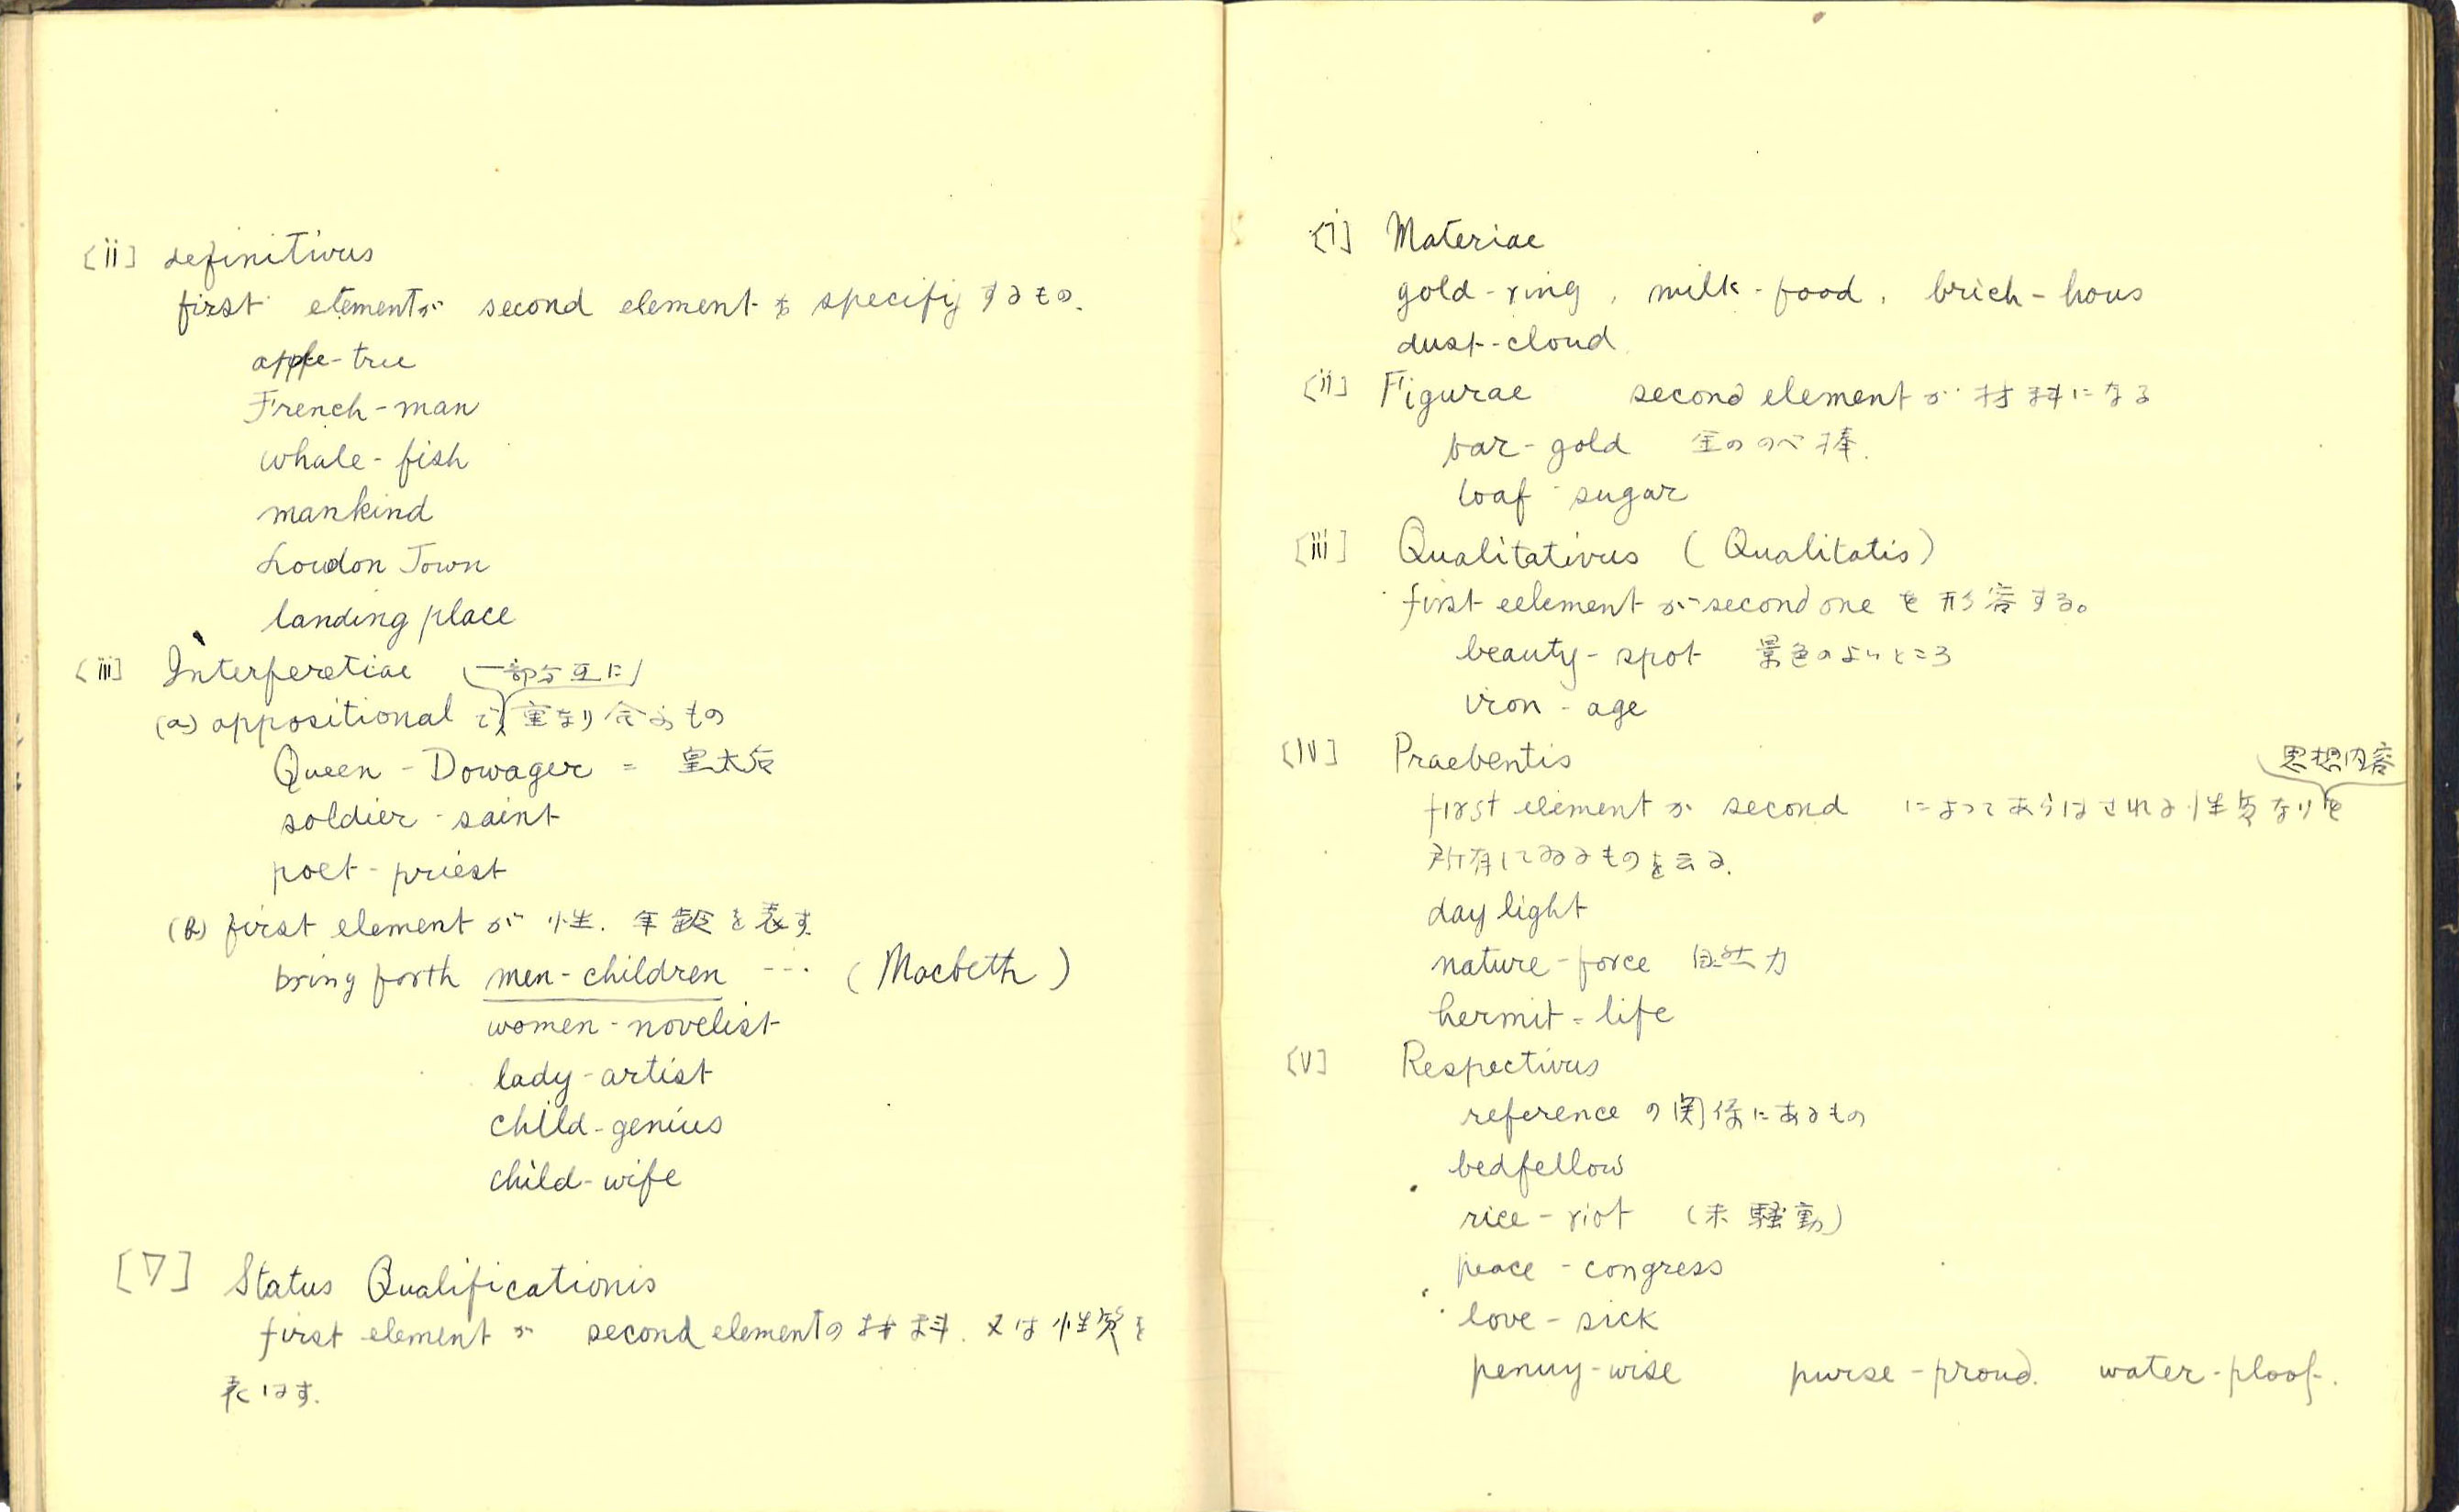 [ii] definitivus
first elementが second element を specifiy するもの.
apple-tree
French-man
whale-fish
mankind
London Town
landing place
[iii] Interferetiae
一部分互に
(a) appositional で 重なり合ふもの
Queen-Dowager = 皇太后
soldier-saint
poet-priest
(b) first element が 性. 年齢を表す.
bring forth men-children --- (Macbeth)
women-novelist
lady-artist
child-genius
child-wife
[V] Status Qualificationis
first element が second elementの材料. 又は性質を
表はす.
[i] Materiae
gold-ring, milk-food, brich-hous
dust-cloud
[ii] Figurae second element が材料になる
bar-gold 金ののべ棒.
loaf-sugar
[iii] Qualitativus (Qualitatis)
first eelement が second one を形容する。
beauty-spot 景色のよいところ
iron-age
[IV] Praebentis
思想内容
first element が second によってあらはされる性質なりを
所有してゐるものを云ふ.
day light
nature-force 自然力
hermit-life
[V] Respectivus
reference の関係にあるもの
bedfellow
rice-riot (米騒動)
peace-congress
love-sick
penny-wise purse-proud. water-ploof.